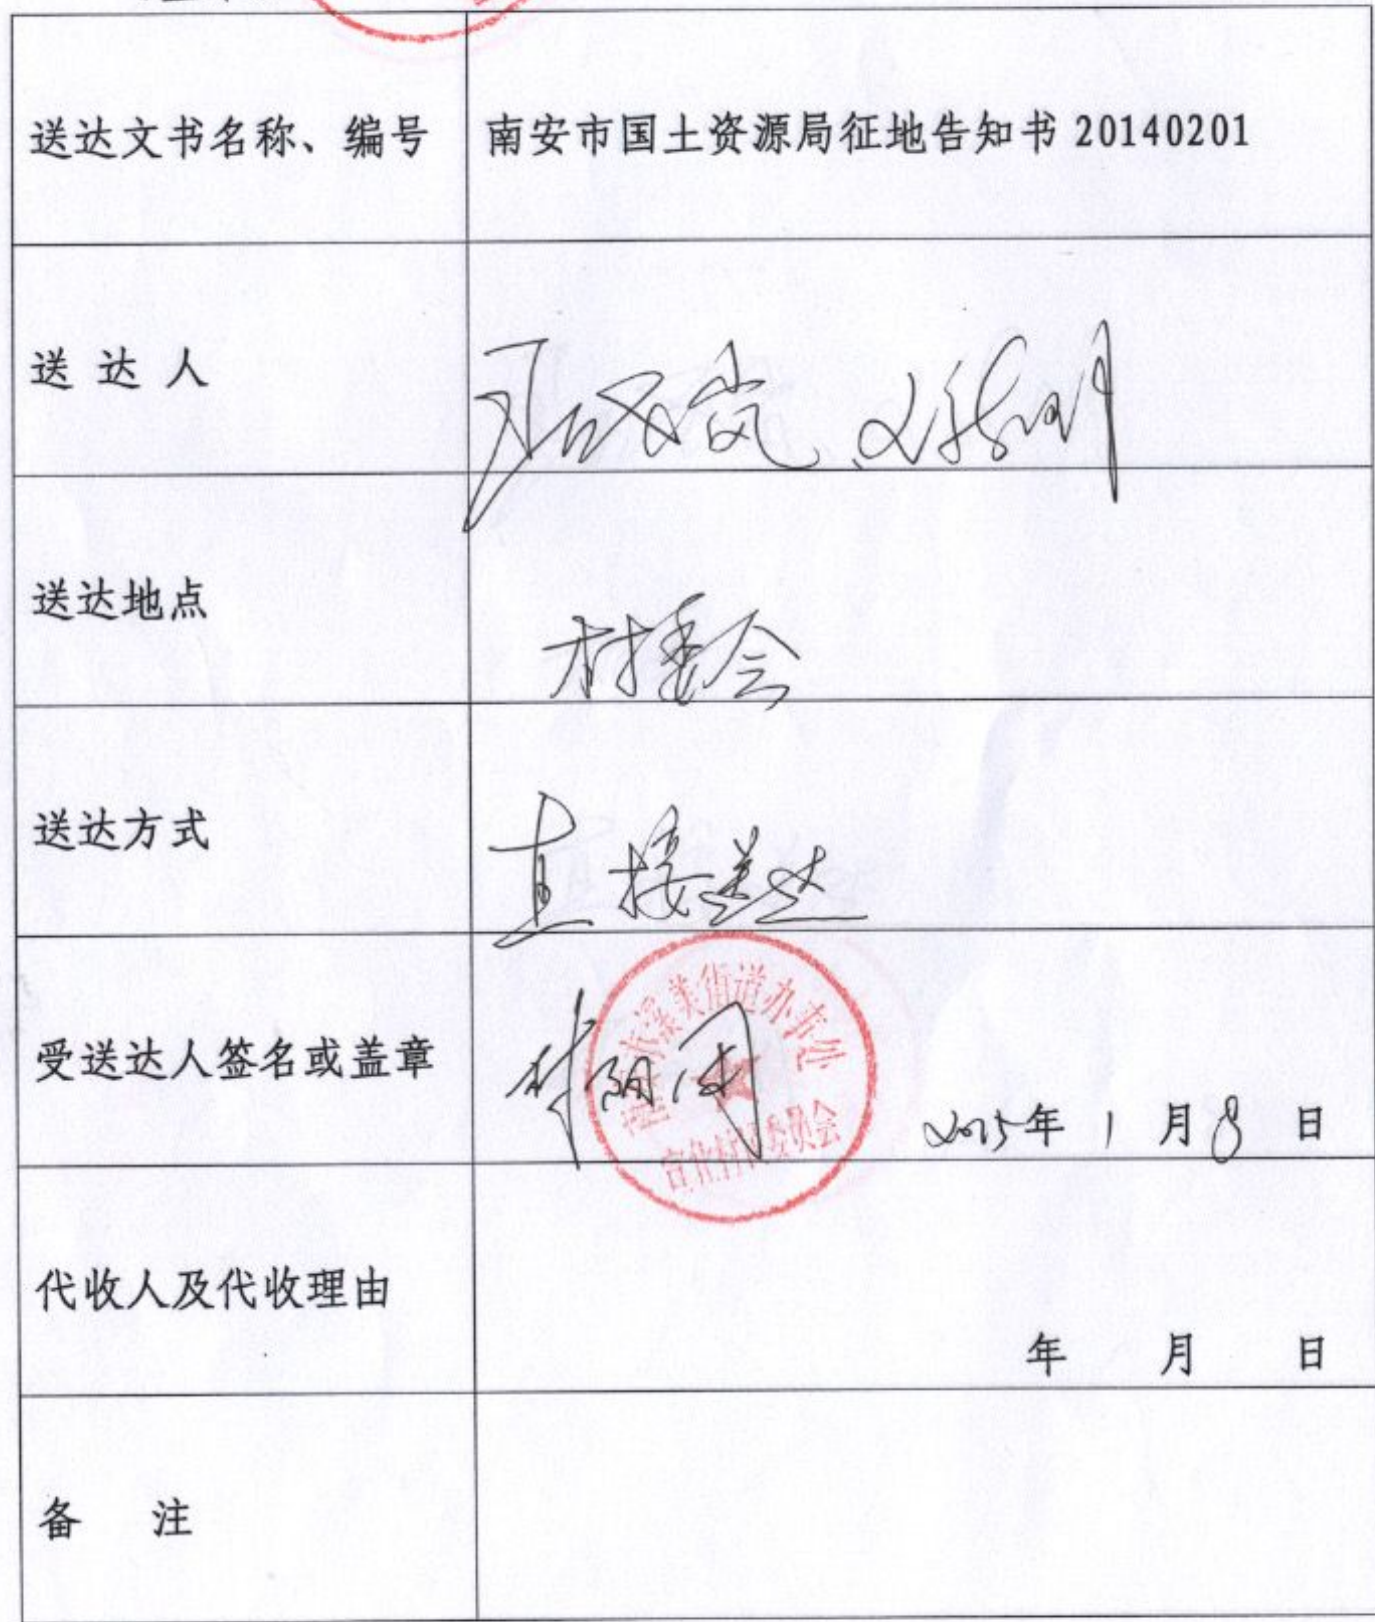 送达文书名称、编号 南安市国土资源局征地告知书 20140201
送 达 人
送达地点 村委会
送达方式 直接送达
受送达人签名或盖章
美街道办事处
委员会
2015年 1 月 8 日
代收人及代收理由
年 月 日
备 注